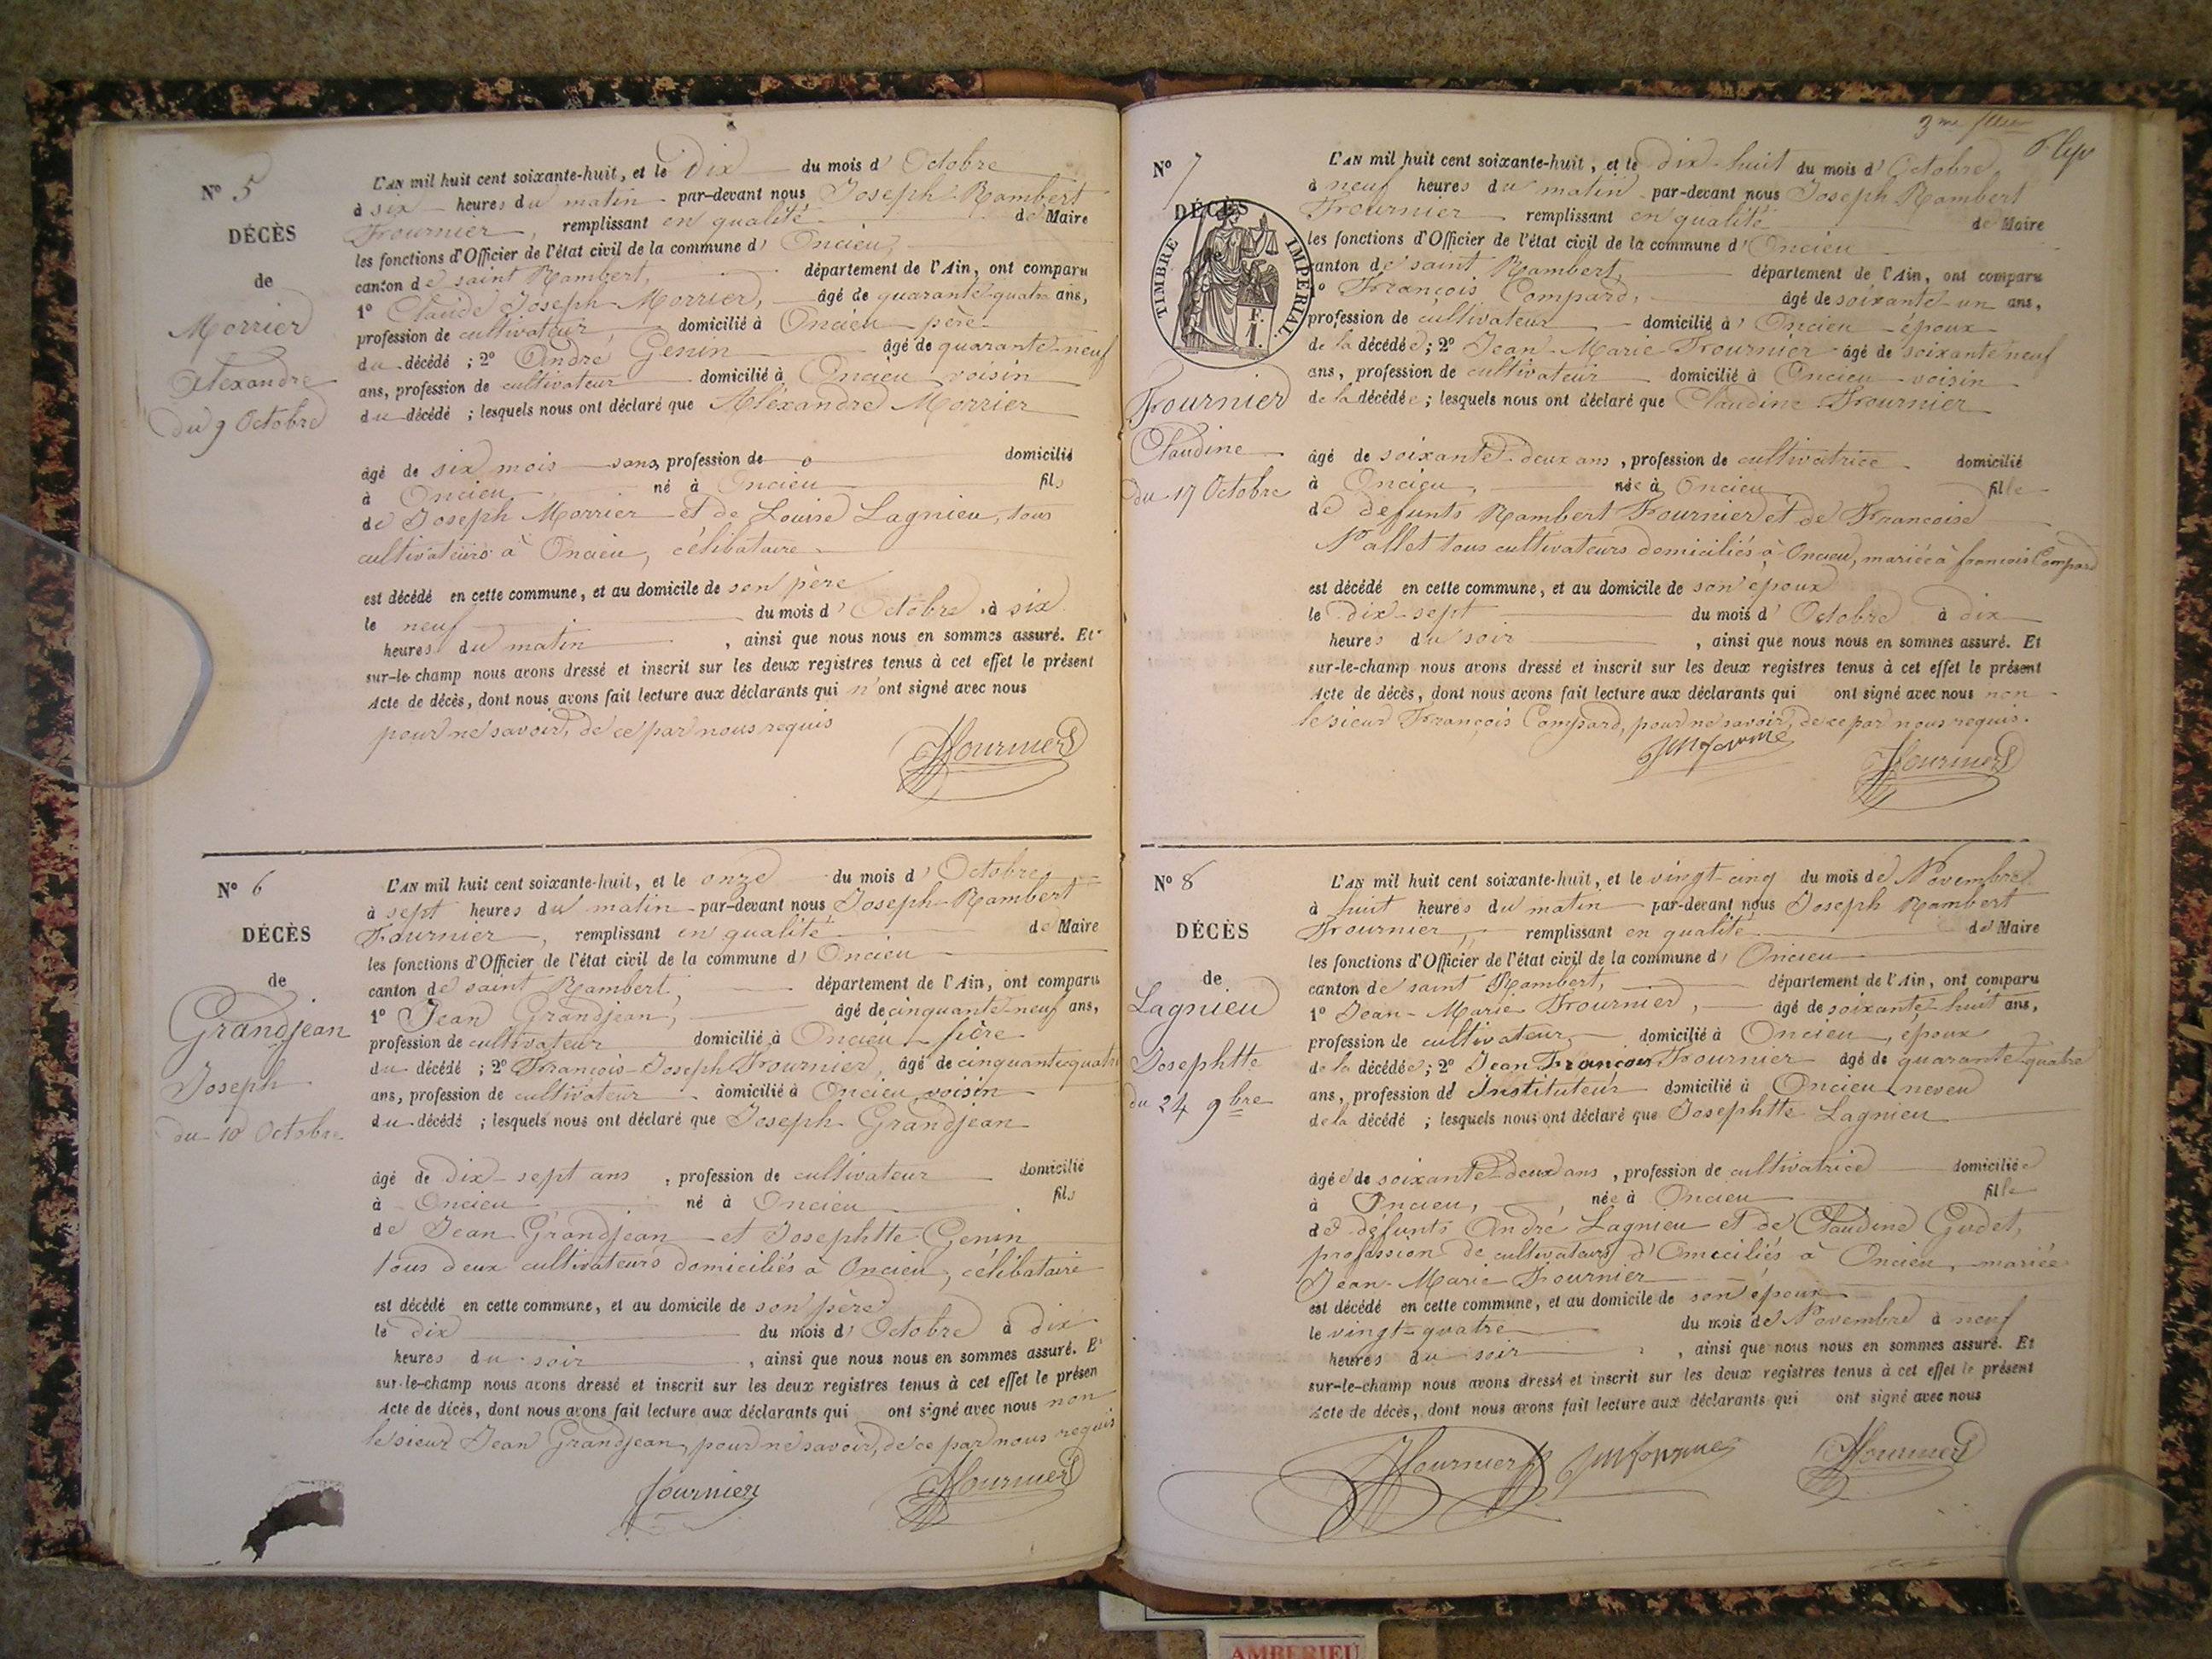 N° 5
DÉCÈS
de
Morrier
Alexandre
du 9 Octobre
L'AN mil huit cent soixante-huit, et le Dix du mois d' Octobre
à six heures du matin par-devant nous Joseph-Rambert
Fournier, remplissant en qualité de Maire
les fonctions d'Officier de l'état civil de la commune d' Oncieu,
canton de saint Rambert, département de l'Ain, ont comparu
1° Claude Joseph Morrier, âgé de quarante-quatre ans,
profession de cultivateur, domicilié à Oncieu père
du décédé ; 2° André Genin âgé de quarante-neuf
ans, profession de cultivateur domicilié à Oncieu voisin
du décédé ; lesquels nous ont déclaré que Alexandre Morrier
âgé de six mois sans profession de o domicilié
à Oncieu, né à Oncieu fils
de Joseph Morrier et de Louise Lagnieu, tous
cultivateurs à Oncieu, célibataire
est décédé en cette commune, et au domicile de son père
le neuf du mois d' Octobre à six
heures du matin, ainsi que nous nous en sommes assuré. Et
sur-le-champ nous avons dressé et inscrit sur les deux registres tenus à cet effet le présent
Acte de décès, dont nous avons fait lecture aux déclarants qui n'ont signé avec nous
pour ne savoir, de ce par nous requis
Fournier
N° 6
DÉCÈS
de
Grandjean
Joseph
du 10 Octobre
L'AN mil huit cent soixante-huit, et le onze du mois d' Octobre
à sept heures du matin par-devant nous Joseph-Rambert
Fournier, remplissant en qualité de Maire
les fonctions d'Officier de l'état civil de la commune d' Oncieu
canton de saint Rambert, département de l'Ain, ont comparu
1° Jean Grandjean, âgé de cinquante-neuf ans,
profession de cultivateur domicilié à Oncieu père
du décédé ; 2° François-Joseph Fournier, âgé de cinquante-quatre
ans, profession de cultivateur domicilié à Oncieu, voisin
du décédé ; lesquels nous ont déclaré que Joseph Grandjean
âgé de dix-sept ans, profession de cultivateur domicilié
à Oncieu né à Oncieu fils
de Jean Grandjean et Josephtte Genin
tous deux cultivateurs domiciliés à Oncieu, célibataire
est décédé en cette commune, et au domicile de son père
le dix du mois d' Octobre à dix
heures du soir, ainsi que nous nous en sommes assuré. Et
sur-le-champ nous avons dressé et inscrit sur les deux registres tenus à cet effet le présen
Acte de décès, dont nous avons fait lecture aux déclarants qui ont signé avec nous non
le sieur Jean Grandjean, pour ne savoir, de ce par nous requis
fournier Fournier
3me
N° 7
DÉCÈS
TIMBRE IMPÉRIAL
F.
1.
Fournier
Claudine
du 17 Octobre
L'AN mil huit cent soixante-huit, et le dix-huit du mois d' Octobre
à neuf heures du matin par-devant nous Joseph Rambert
Fournier remplissant en qualité de Maire
les fonctions d'Officier de l'état civil de la commune d' Oncieu
canton de saint Rambert, département de l'Ain, ont comparu
1° François Compard, âgé de soixante-un ans,
profession de cultivateur domicilié à Oncieu époux
de la décédée ; 2° Jean-Marie Fournier âgé de soixante neuf
ans, profession de cultivateur domicilié à Oncieu voisin
de la décédée ; lesquels nous ont déclaré que Claudine Fournier
âgé de soixante-deux ans, profession de cultivatrice domicilié
à Oncieu, née à Oncieu fille
de défunts Rambert Fournier et de Francoise
Vallet tous cultivateurs domiciliés à Oncieu, mariée à francois Compard
est décédé en cette commune, et au domicile de son époux
le dix-sept du mois d' Octobre à dix
heures du soir, ainsi que nous nous en sommes assuré. Et
sur-le-champ nous avons dressé et inscrit sur les deux registres tenus à cet effet le présent
Acte de décès, dont nous avons fait lecture aux déclarants qui ont signé avec nous non
le sieur François Compard, pour ne savoir, de ce par nous requis.
Fournier
N° 8
DÉCÈS
de
Lagnieu
Josephtte
du 24 9bre
L'AN mil huit cent soixante-huit, et le vingt-cinq du mois de Novembre
à huit heures du matin par-devant nous Joseph Rambert
Fournier, remplissant en qualité de Maire
les fonctions d'Officier de l'état civil de la commune d' Oncieu
canton de saint Rambert, département de l'Ain, ont comparu
1° Jean-Marie Fournier, âgé de soixante huit ans,
profession de cultivateur domicilié à Oncieu, époux
de la décédée ; 2° Jean François Fournier âgé de quarante-quatre
ans, profession de Instituteur domicilié à Oncieu neveu
de la décédé ; lesquels nous ont déclaré que Josephtte Lagnieu
âgée de soixante-deux ans, profession de cultivatrice domiciliée
à Oncieu, née à Oncieu fille
de défunts André Lagnieu et de Claudine Gudet,
profession de cultivateurs d'Omiciliés à Oncieu, mariée
Jean-Marie Fournier
est décédé en cette commune, et au domicile de son époux
le vingt-quatre du mois de Novembre à neuf
heures du soir, ainsi que nous nous en sommes assuré. Et
sur-le-champ nous avons dressé et inscrit sur les deux registres tenus à cet effet le présent
Acte de décès, dont nous avons fait lecture aux déclarants qui ont signé avec nous
Fournier Fournier
AMBERIEU